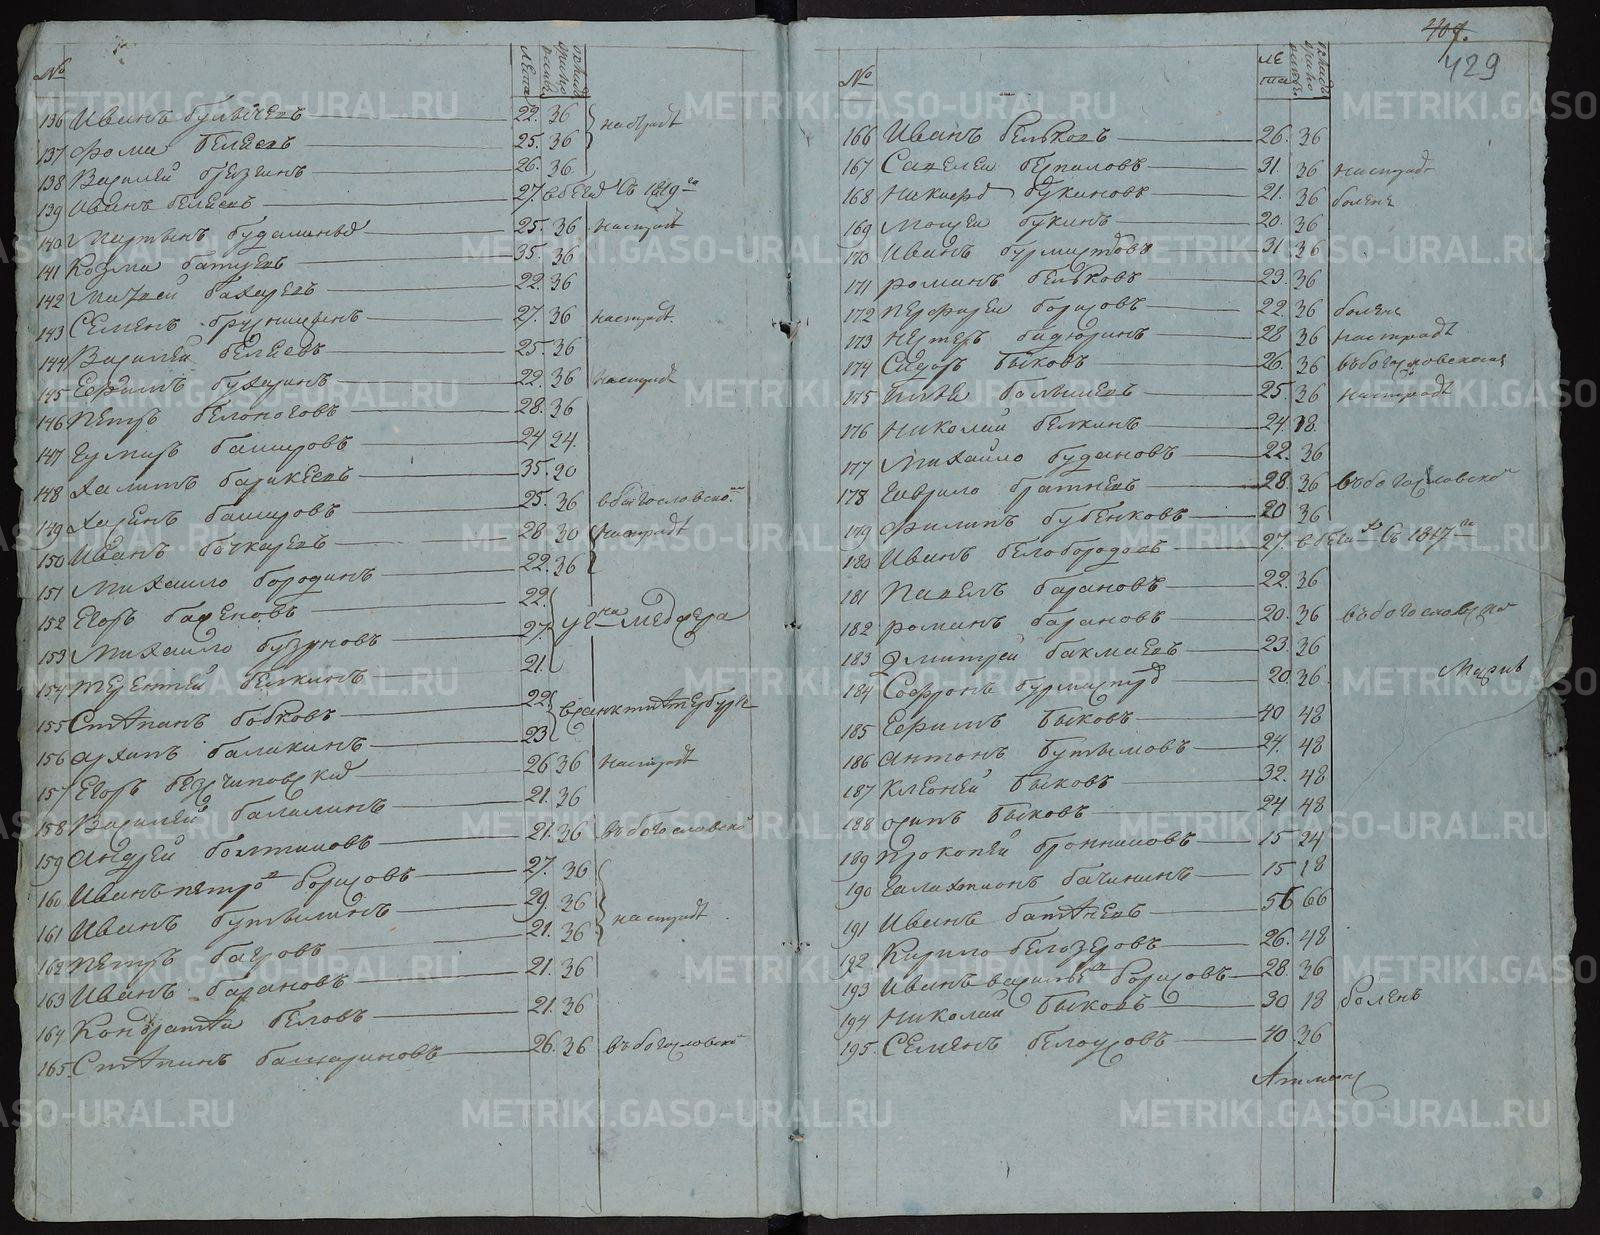 № лета
136 Иванъ Булычевъ 22. 36
137 Фома Белеевъ 25. 36 на страдѣ
138 Василей Брезгинъ 26. 36
139 Иванъ Белеевъ 27. в бегах съ 1819 го
140 Мартынъ 25. 36 на страдѣ
141 Козма Батуевъ 35. 36
142 Матвей Бахаревъ 22. 36
143 Семенъ 27. 36 на страдѣ
144 Василей Белеевъ 25. 36
145 Ефимъ Бухаринъ 22. 36 на страдѣ
146 Петръ Белоноговъ 28. 36
147 Башировъ 24 24.
148 Халитъ 35. 20
149 Башировъ 25. 36 в богословско
150 Иванъ Бочкаревъ 28 30 на страдѣ
151 Михайло Бородинъ 22. 36
152 Егоръ Баженовъ 22.
153 Михайло Бузуновъ 27. у гна Меджера
154 Терентей Белкинъ 21.
155 Степанъ Бобковъ 22 в санктпетербурге
156 Архипъ Балакинъ 23
157 Егоръ 26 36 на страдѣ
158 Василей Балалинъ 21. 36
159 Андрей Болтышовъ 21. 36 въ богословско
160 Иванъ петро Борисовъ 27. 36
161 Иванъ Бутылинъ 29. 36 на страдѣ
162 Петръ Багровъ 21. 36
163 Иванъ Барановъ 21. 36
164 Кондратей Беловъ 21. 36
165. Степанъ Башариновъ 26. 36 въ богословско
407.
429
№ лета
166 Иванъ Бельковъ 26. 36
167 Савелей Берсиловъ 31. 36 на страдѣ
168 Никифор Букиновъ 21. 36 болене
169 Мосей Букинъ 20. 36
170 Иванъ Бурмистровъ 31 36
171 Романъ Бельковъ 23. 36
172 Перфирей Борисовъ 22. 36 болене
173 Нестеръ Бадюринъ 28 36 на страдѣ
174 Сидоръ Быковъ 26. 36 въ богословской
175 Илья Болышевъ 25. 36 на страдѣ
176 Николай Белкинъ 24. 18.
177 Михайло Будановъ 22. 36
178 Гаврило Братневъ 28 36 въ богословско
179 Филипъ Бубенковъ 20 36
180 Иванъ Белобородовъ 27. в бегах съ 1817 го
181 Павелъ Барановъ 22. 36
182 Романъ Барановъ 20. 36 въ богословско
183 Дмитрей Бакмаевъ 23. 36
184 Софронъ Бурмистров 20. 36
185 Ефимъ Быковъ 40 48
186 Антонъ Бутымовъ 27. 48
187 Быковъ 32. 48
188 Осипъ Быковъ 24 48
189 Прокопей Бронниковъ 15 24
190 Галахтионъ Бачининъ 15 18
191 Иванъ Батеневъ 56 66
192 Кирило Белозеровъ 26. 48
193 Иванъ василье Борисовъ 28. 36
194 Николай Быковъ 30 18 боленъ
195. Семенъ Белоусовъ 40 36